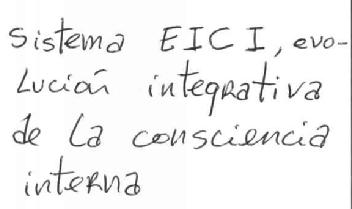 Sistema EICI, evo-
Lución integrativa
de La consciencia
interna